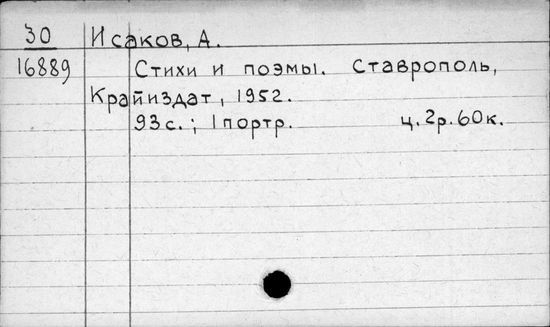 30 Исаков, А.
16889 Стихи и поэмы. Ставрополь,
Крайиздат, 1952.
93с.; 1 портр. ц. 2р. 60к.